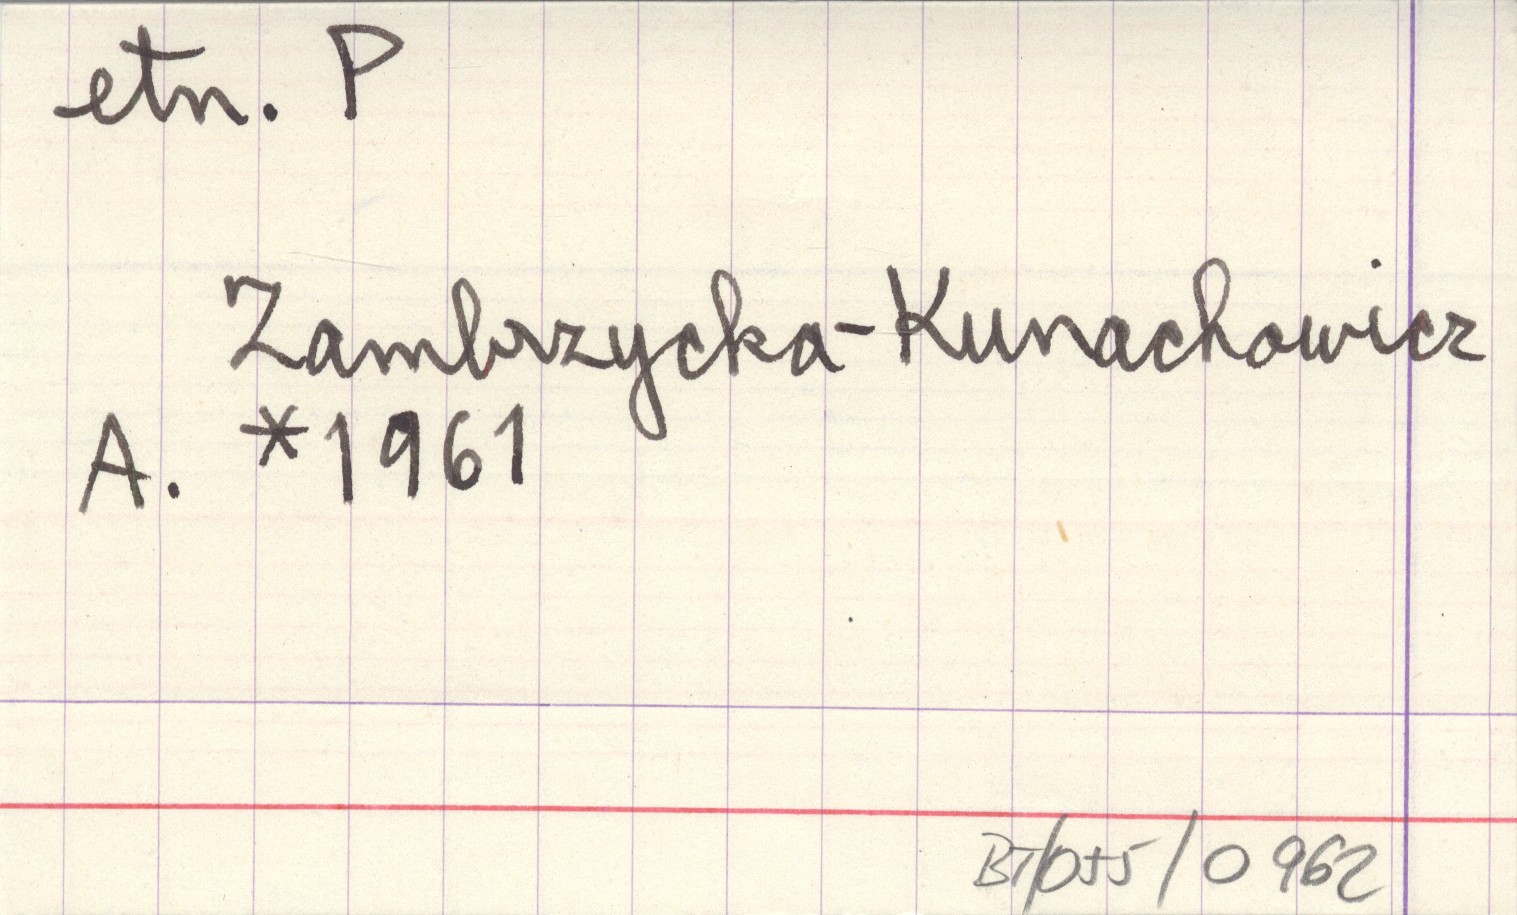 etn. P
Zambrzycka-Kunachowicz
A. *1961
BT/055/0962